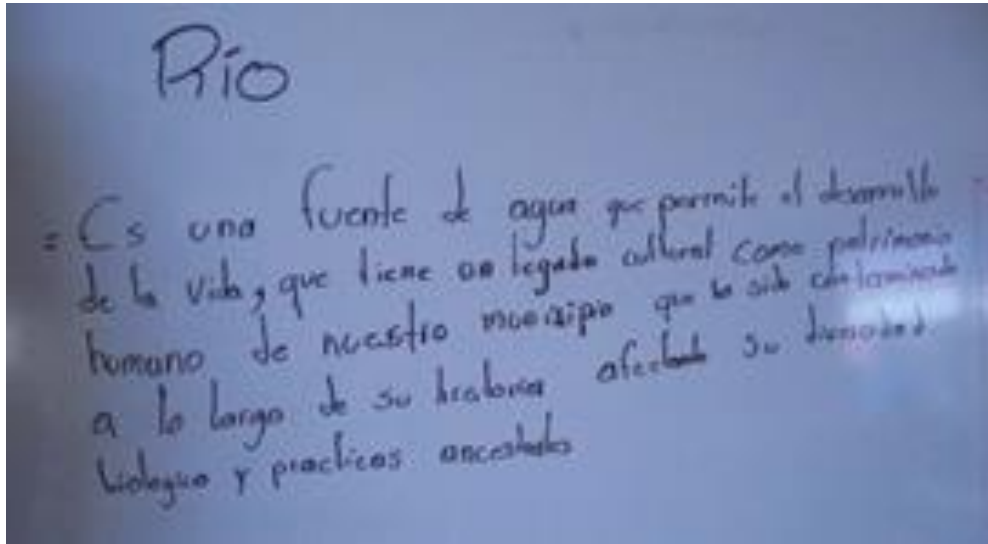 Río
= Es una fuente de agua que permite el desarrollo
de la vida, que tiene un legado cultural como patrimonio
humano de nuestro municipio que ha sido contaminado
a lo largo de su historia afectando su diversidad
biologica y practicas ancestrales